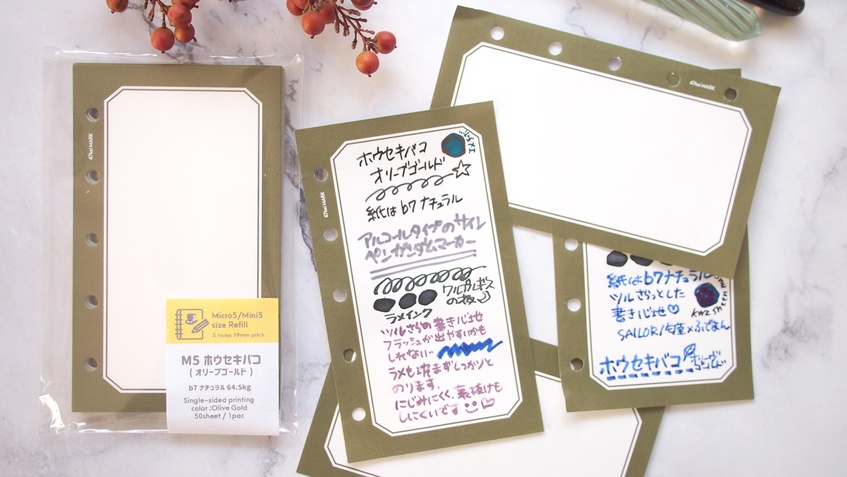 47tei MARK
Micro5/Mini5
size Refill
5 holes 19mm patch
M5 ホウセキバコ
( オリーブゴールド )
b7 ナチュラル 64.5kg
Single-sided printing
color :Olive Gold
50sheet / 1pac
47tei MARK
ホウセキバコ
オリーブゴールド
紙は b7 ナチュラル
アルコールタイプのサイン
ペンガンダムマーカー
ワルプルギス
の夜
ラメインク
ツルさらの書き心地
フラッシュが出やすいかも
しれない
ラメも沈まずしっかりと
のります.
にじみにくく、裏抜けも
しにくいです
47tei MARK
紙はb7ナチュラル
ツルさらっとした
書き心地
SAILOR/
ホウセキバコ